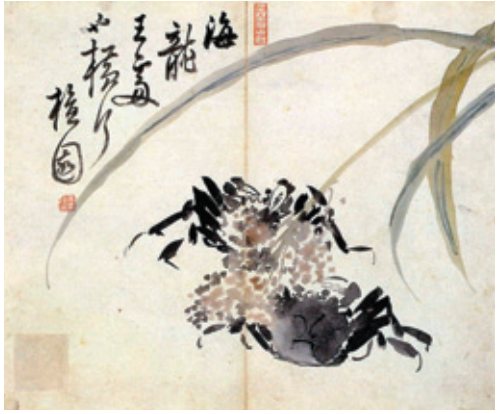 海
龍
王處
也橫行
檀園